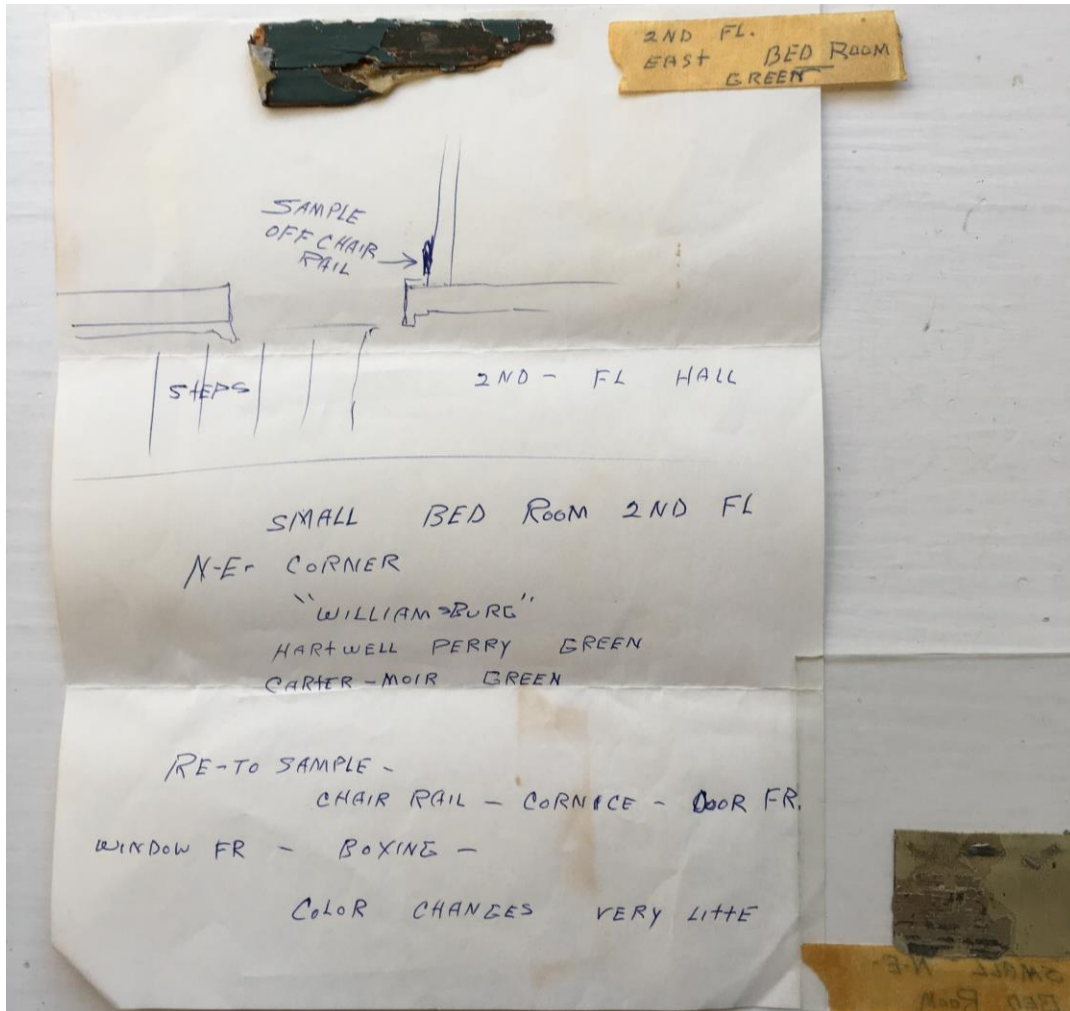 2ND FL.
EAST BED ROOM
GREEN
SAMPLE
OFF CHAIR
RAIL
STEPS
2ND - FL HALL
SMALL BED ROOM 2ND FL
N-E- CORNER
"WILLIAMSBURG"
HARTWELL PERRY GREEN
CARTER-MOIR GREEN
RE-TO SAMPLE -
CHAIR RAIL - CORNICE - DOOR FR.
WINDOW FR - BOXING -
COLOR CHANGES VERY LITTE
SMALL N-E-
BED ROOM